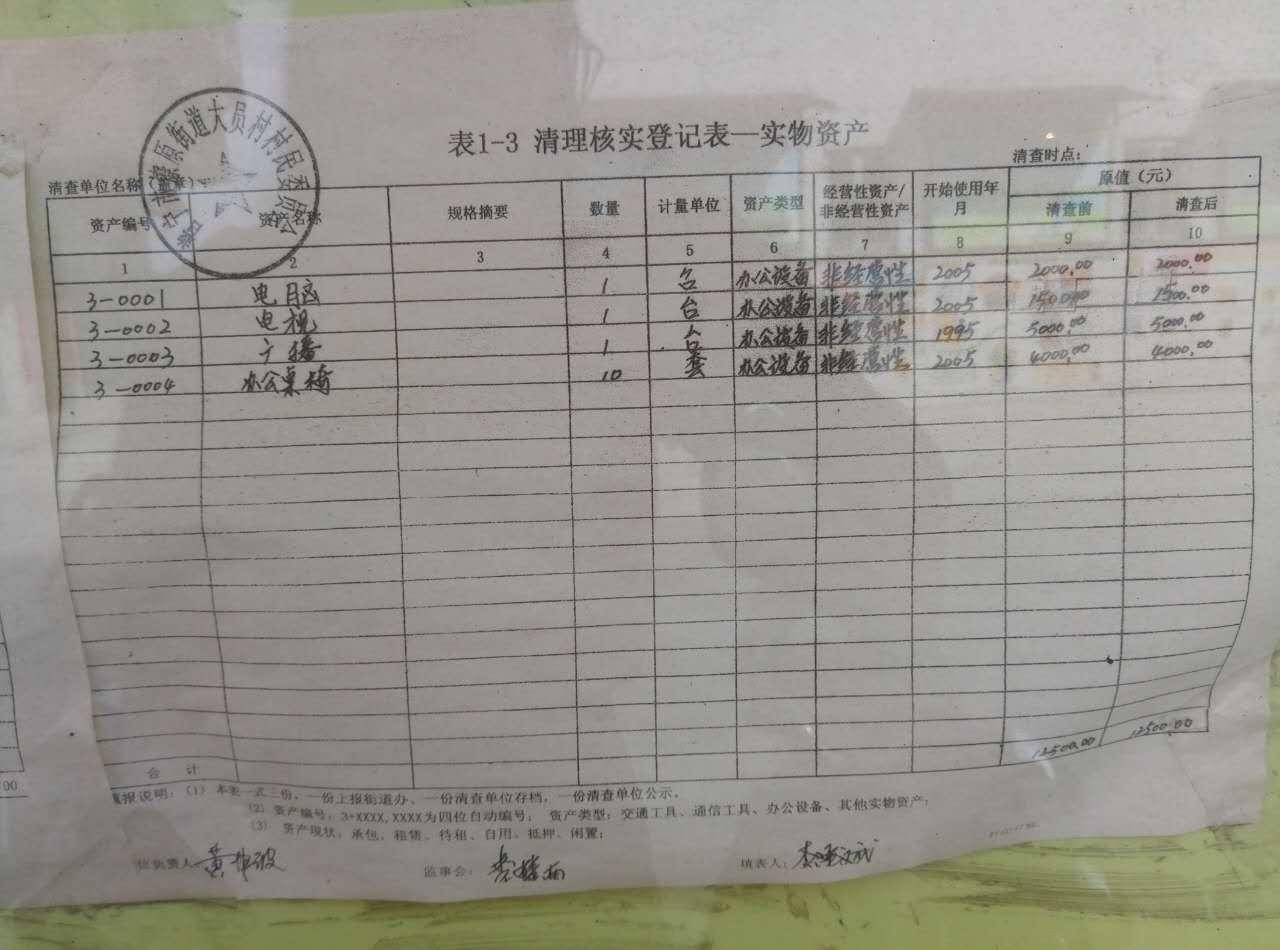 表1-3 清理核实登记表—实物资产
燎原街道大员村村民委员会
清查单位名称(盖章) 清查时点:
资产编号 资产名称 规格摘要 数量 计量单位 资产类型 经营性资产/非经营性资产 开始使用年月 原值(元)
清查前 清查后
1 2 3 4 5 6 7 8 9 10
3-0001 电脑 1 台 办公设备 非经营性 2005 2000.00 2000.00
3-0002 电视 1 台 办公设备 非经营性 2005 1500.00 1500.00
3-0003 广播 1 台 办公设备 非经营性 1995 5000.00 5000.00
3-0004 办公桌椅 10 套 办公设备 非经营性 2005 4000.00 4000.00
合计 12500.00 12500.00
填报说明:(1) 本表一式三份,一份上报街道办、一份清查单位存档,一份清查单位公示。
(2) 资产编号:3+XXXX,XXXX为四位自动编号; 资产类型:交通工具、通信工具、办公设备、其他实物资产;
(3) 资产现状:承包、租赁、待租、自用、抵押、闲置;
位负责人 监事会: 填表人: